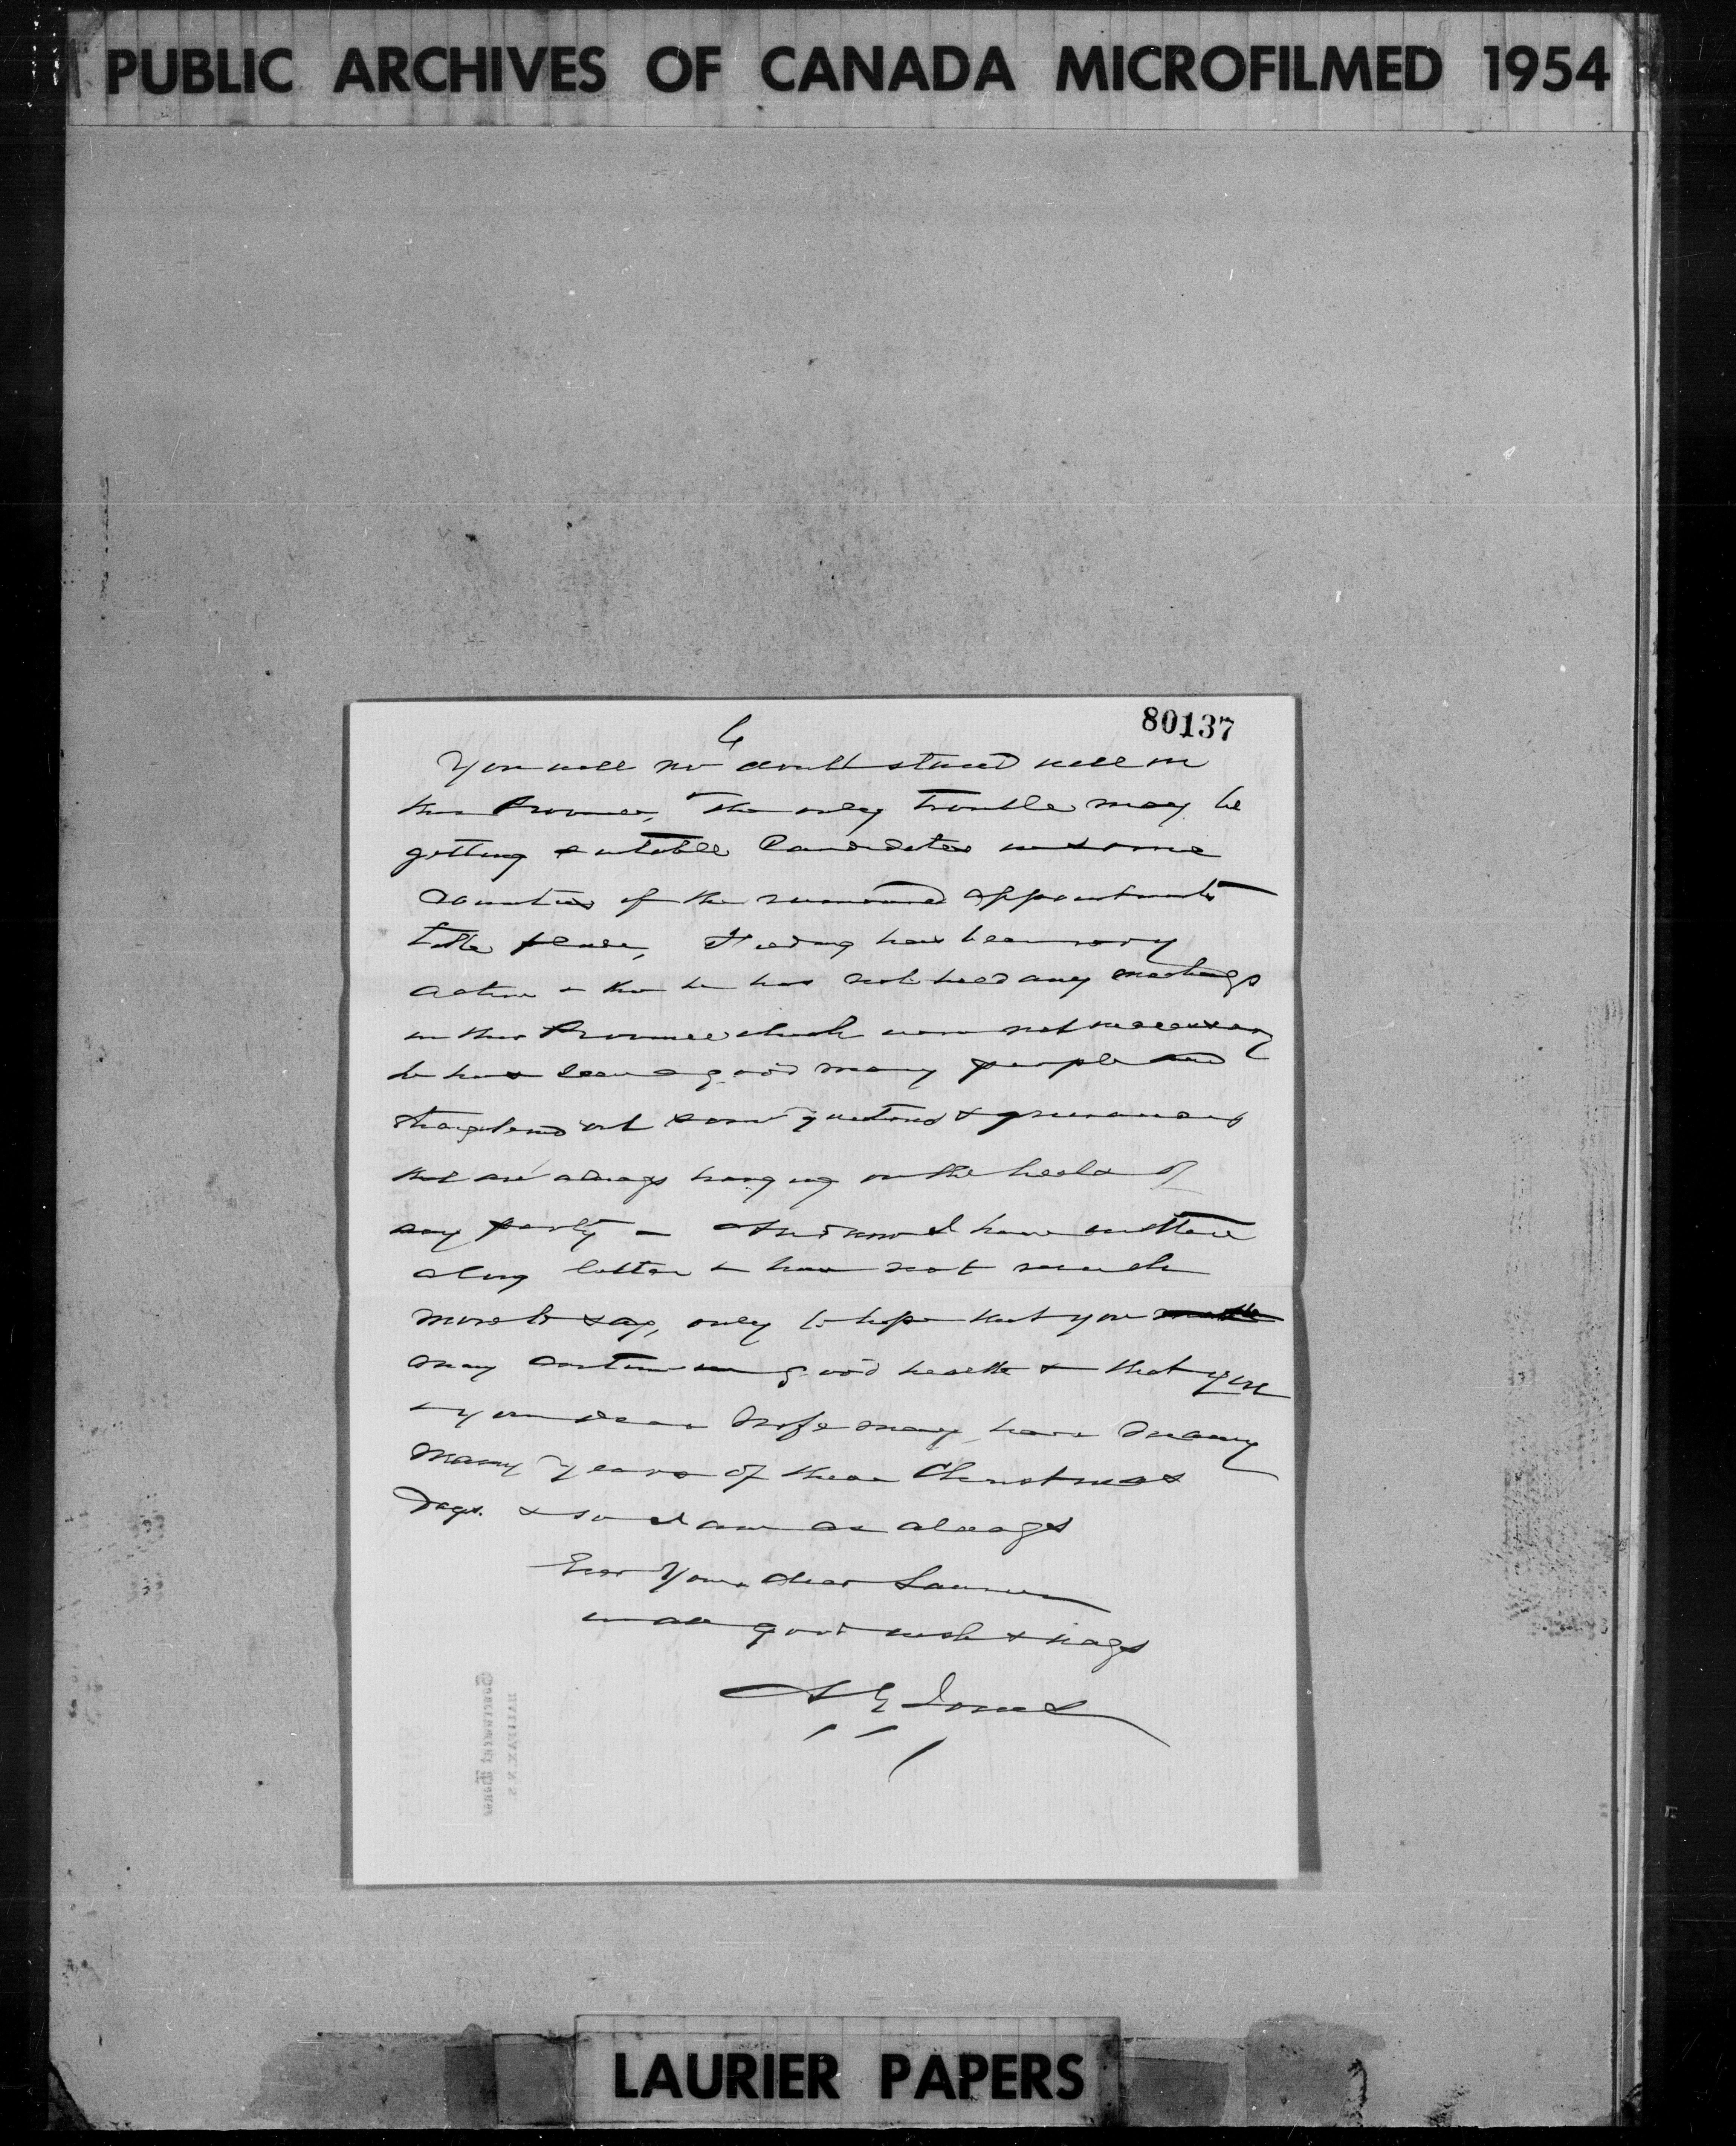 PUBLIC ARCHIVES OF CANADA MICROFILMED 1954
80137
6
You will no doubt stand well in
this Province, The only trouble may be
getting suitable Candidates in some
Counties if the rumoured appointments
take place, Fielding has been very
active & tho he has not held any meetings
in this Province which were not necessary
he has seen a good many people and
straightened out some questions & grievances
that are always hanging on the heels of
any party – And now I have written
a long letter & have not much
more to say, only to hope that you
may continue in good health & that you
& your dear Wife may have many
many years of these Christmas
Days. & so I am as always
Ever Yours dear Laurier
in all good wishes
A G Jones
Government House
HALIFAX. N. S.
LAURIER PAPERS